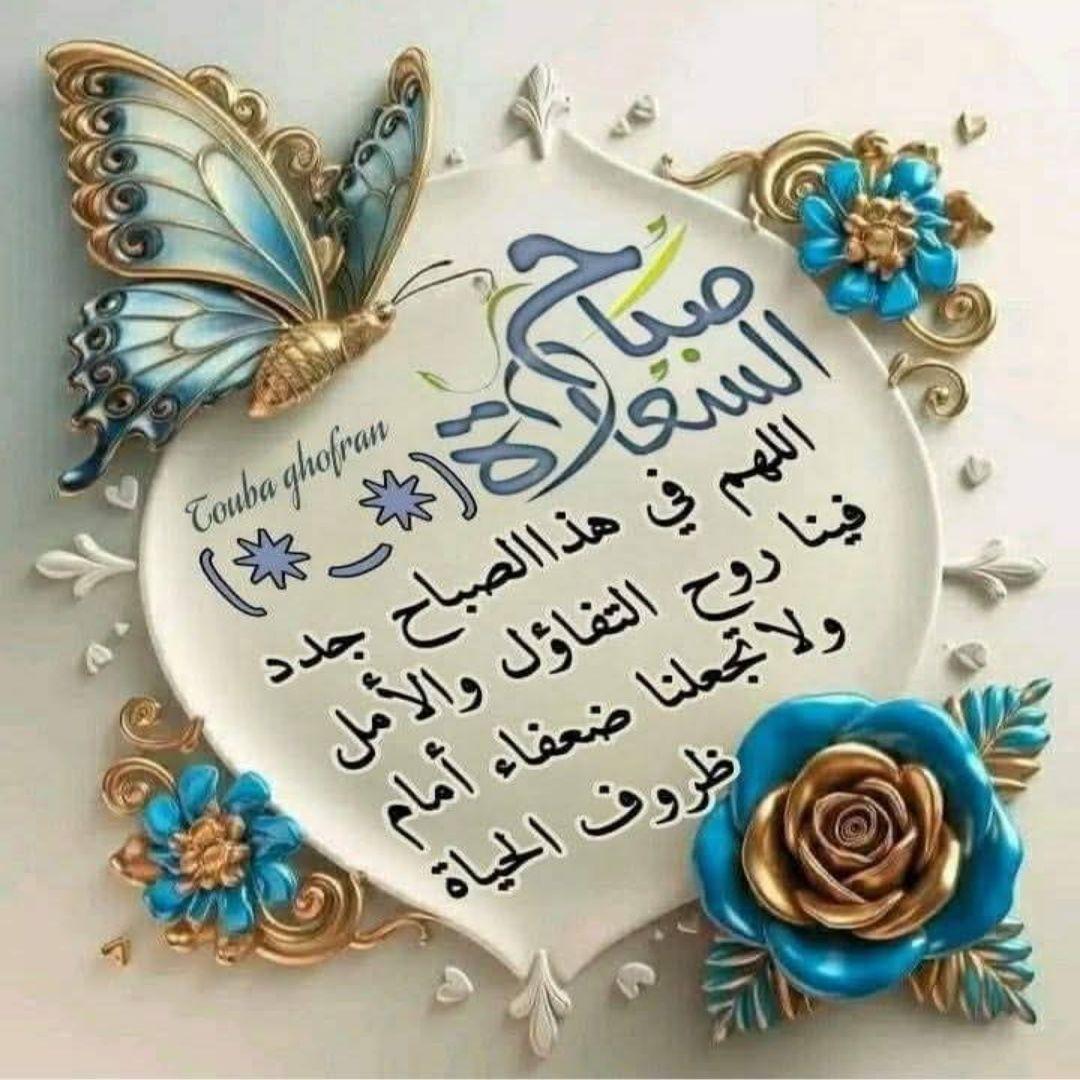 صباح
السعادة
Touba ghofran
(*_*)
اللهم في هذاالصباح جدد
فينا روح التفاؤل والأمل
ولاتجعلنا ضعفاء أمام
ظروف الحياة